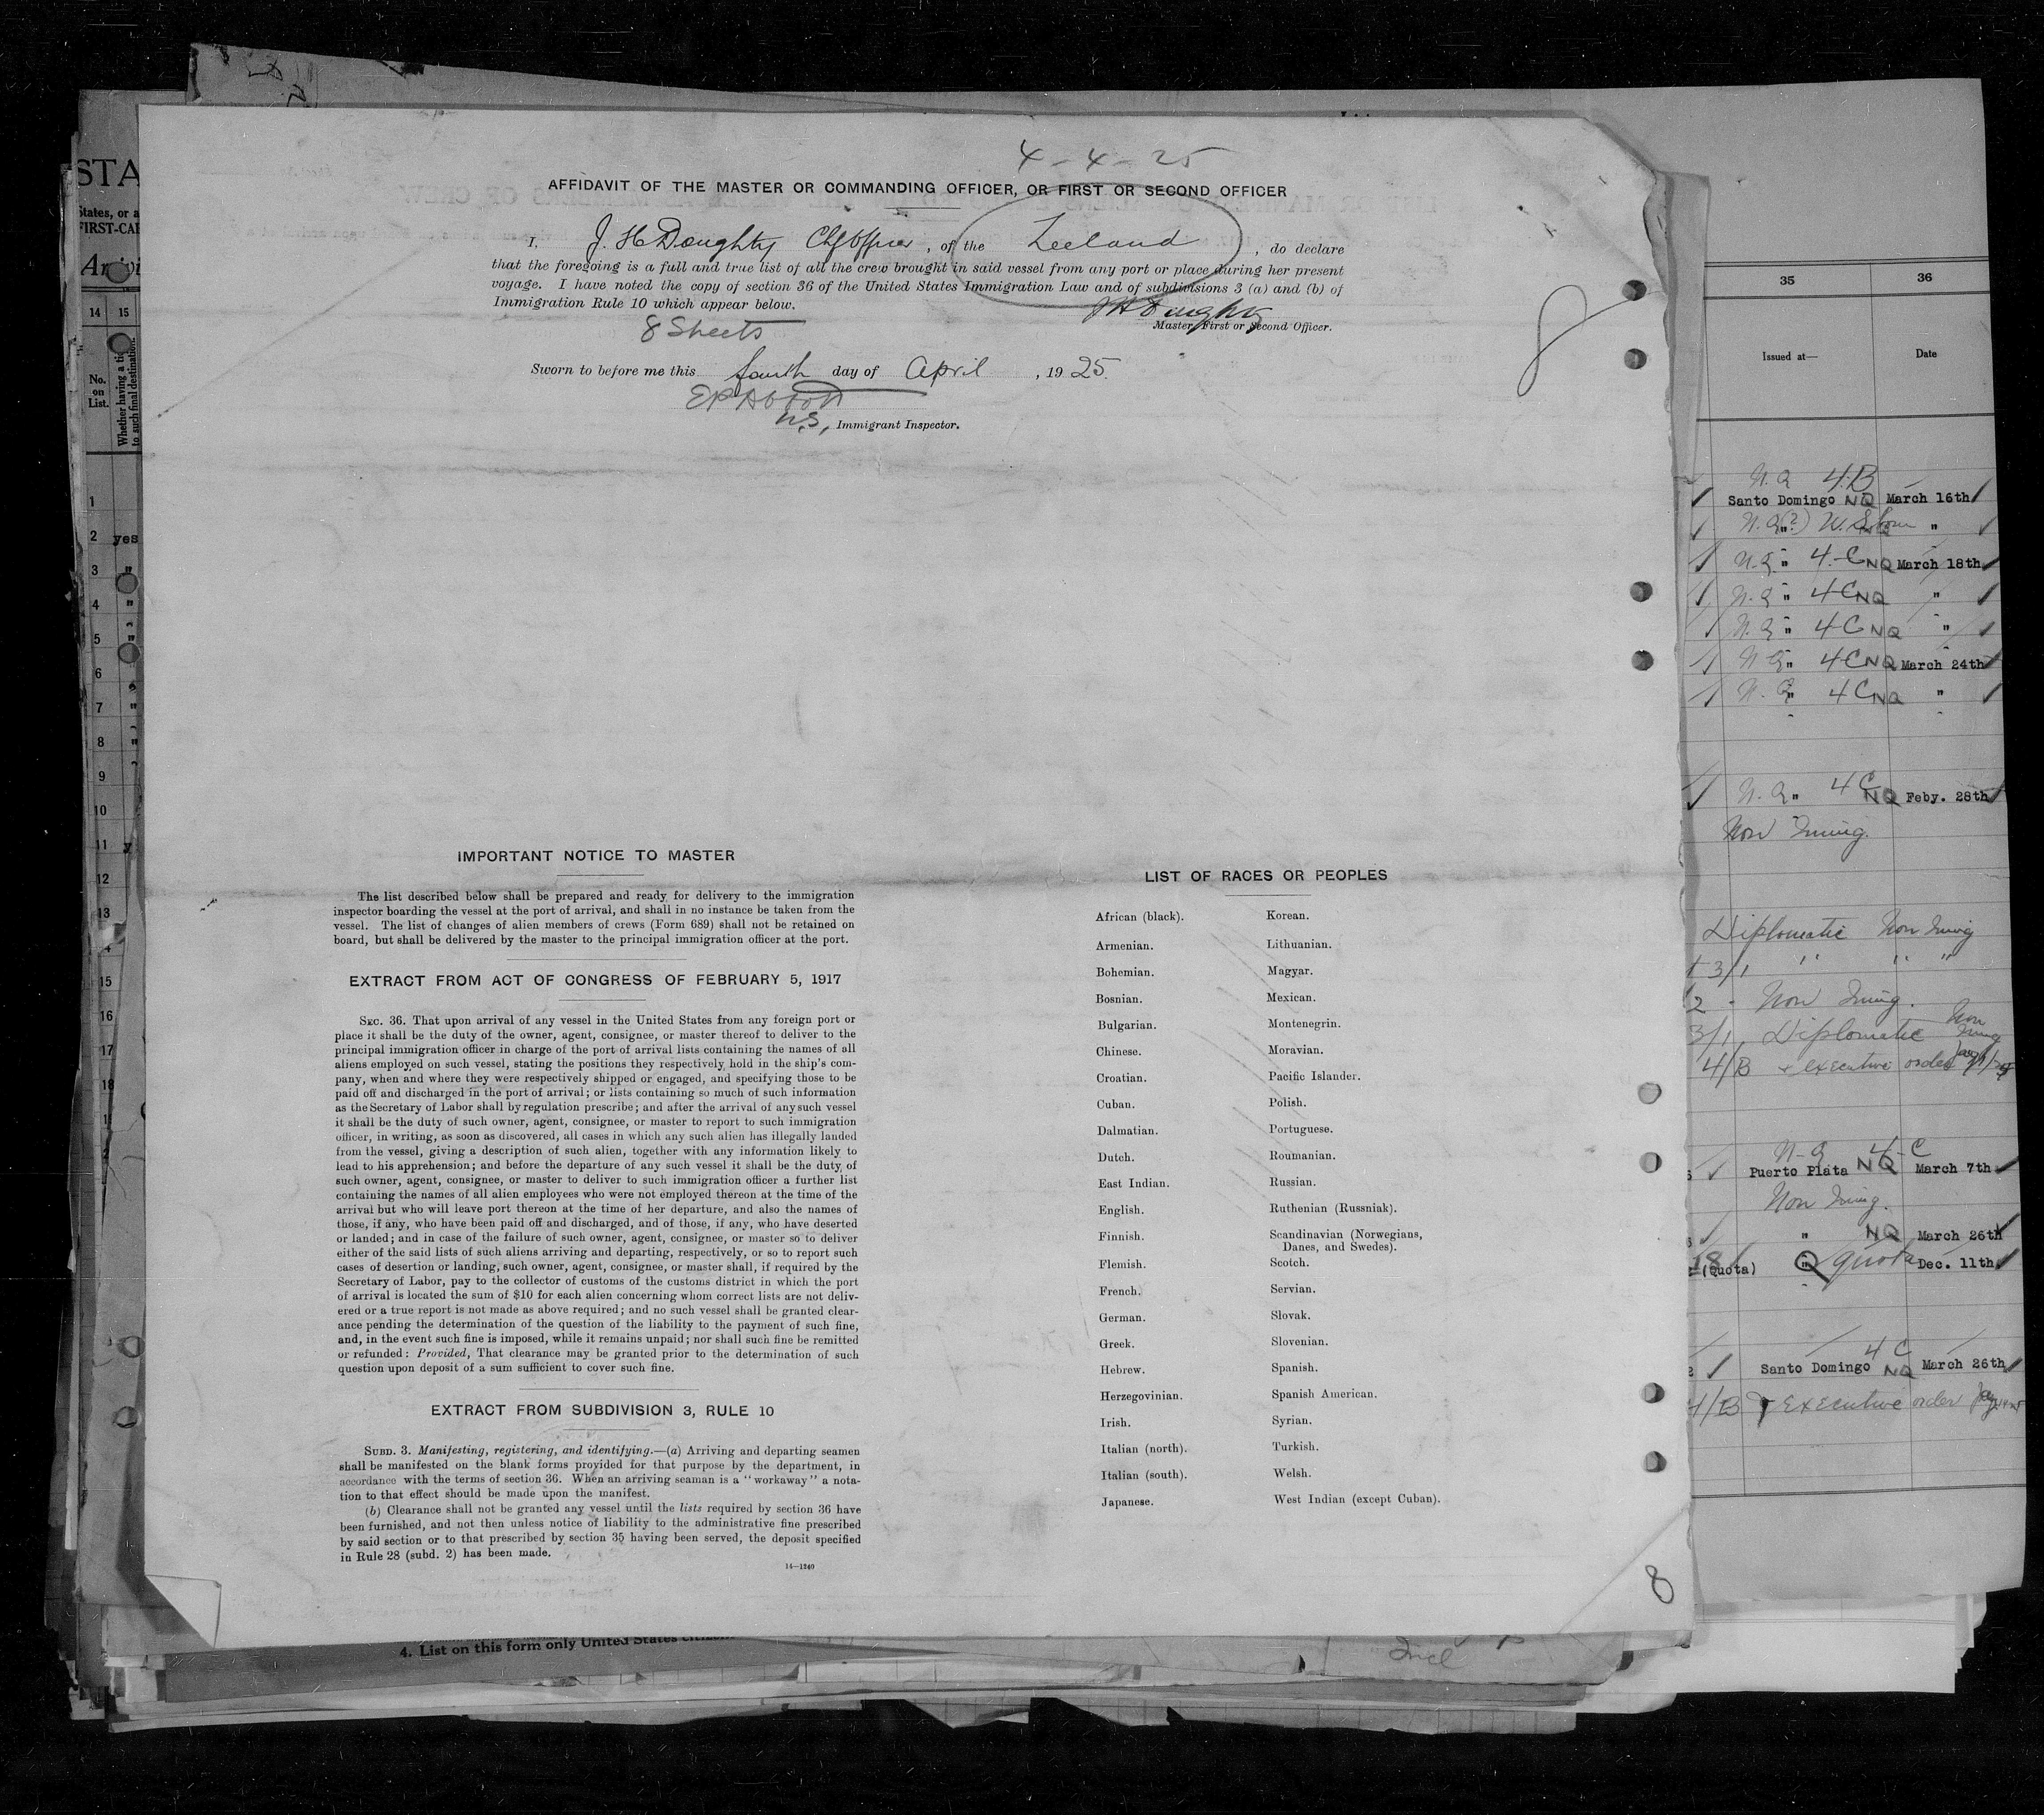 4-4-25
AFFIDAVIT OF THE MASTER OR COMMANDING OFFICER, OR FIRST OR SECOND OFFICER
I, J. H Doughty Chf Officer, of the Zeeland, do declare
that the foregoing is a full and true list of all the crew brought in said vessel from any port or place during her present
voyage. I have noted the copy of section 36 of the United States Immigration Law and of subdivisions 3 (a) and (b) of
Immigration Rule 10 which appear below.
JH Doughty
8 Sheets
Master, First or Second Officer.
Sworn to before me this fourth day of April, 1925.
U.S, Immigrant Inspector.
8
IMPORTANT NOTICE TO MASTER
The list described below shall be prepared and ready for delivery to the immigration
inspector boarding the vessel at the port of arrival, and shall in no instance be taken from the
vessel. The list of changes of alien members of crews (Form 689) shall not be retained on
board, but shall be delivered by the master to the principal immigration officer at the port.
EXTRACT FROM ACT OF CONGRESS OF FEBRUARY 5, 1917
SEC. 36. That upon arrival of any vessel in the United States from any foreign port or
place it shall be the duty of the owner, agent, consignee, or master thereof to deliver to the
principal immigration officer in charge of the port of arrival lists containing the names of all
aliens employed on such vessel, stating the positions they respectively hold in the ship's com-
pany, when and where they were respectively shipped or engaged, and specifying those to be
paid off and discharged in the port of arrival; or lists containing so much of such information
as the Secretary of Labor shall by regulation prescribe; and after the arrival of any such vessel
it shall be the duty of such owner, agent, consignee, or master to report to such immigration
officer, in writing, as soon as discovered, all cases in which any such alien has illegally landed
from the vessel, giving a description of such alien, together with any information likely to
lead to his apprehension; and before the departure of any such vessel it shall be the duty of
such owner, agent, consignee, or master to deliver to such immigration officer a further list
containing the names of all alien employees who were not employed thereon at the time of the
arrival but who will leave port thereon at the time of her departure, and also the names of
those, if any, who have been paid off and discharged, and of those, if any, who have deserted
or landed; and in case of the failure of such owner, agent, consignee, or master so to deliver
either of the said lists of such aliens arriving and departing, respectively, or so to report such
cases of desertion or landing, such owner, agent, consignee, or master shall, if required by the
Secretary of Labor, pay to the collector of customs of the customs district in which the port
of arrival is located the sum of $10 for each alien concerning whom correct lists are not deliv-
ered or a true report is not made as above required; and no such vessel shall be granted clear-
ance pending the determination of the question of the liability to the payment of such fine,
and, in the event such fine is imposed, while it remains unpaid; nor shall such fine be remitted
or refunded: Provided, That clearance may be granted prior to the determination of such
question upon deposit of a sum sufficient to cover such fine.
EXTRACT FROM SUBDIVISION 3, RULE 10
SUBD. 3. Manifesting, registering, and identifying.—(a) Arriving and departing seamen
shall be manifested on the blank forms provided for that purpose by the department, in
accordance with the terms of section 36. When an arriving seaman is a "workaway" a nota-
tion to that effect should be made upon the manifest.
(b) Clearance shall not be granted any vessel until the lists required by section 36 have
been furnished, and not then unless notice of liability to the administrative fine prescribed
by said section or to that prescribed by section 35 having been served, the deposit specified
in Rule 28 (subd. 2) has been made.
14—1240
LIST OF RACES OR PEOPLES
African (black).
Armenian.
Bohemian.
Bosnian.
Bulgarian.
Chinese.
Croatian.
Cuban.
Dalmatian.
Dutch.
East Indian.
English.
Finnish.
Flemish.
French.
German.
Greek.
Hebrew.
Herzegovinian.
Irish.
Italian (north).
Italian (south).
Japanese.
Korean.
Lithuanian.
Magyar.
Mexican.
Montenegrin.
Moravian.
Pacific Islander.
Polish.
Portuguese.
Roumanian.
Russian.
Ruthenian (Russniak).
Scandinavian (Norwegians,
Danes, and Swedes).
Scotch.
Servian.
Slovak.
Slovenian.
Spanish.
Spanish American.
Syrian.
Turkish.
Welsh.
West Indian (except Cuban).
8
STA
States, or a
FIRST-CA
14 15
No.
on
List.
Whether having a ti
to such final destination
1
2 yes
3 "
4 "
5 "
6
7 "
8 "
9
10
11
12
13
15
16
17
18
35 36
Issued at— Date
N.Q 4-B
Santo Domingo NQ March 16th
" "
N.Q " 4-C NQ March 18th
N.Q " 4C NQ "
N.Q " 4C NQ "
N.Q " 4C NQ March 24th
N.Q " 4C NQ "
N.Q " 4C NQ Feby. 28th
Non Immig.
Diplomatic Non Immig
3/1 " " "
2 - Non Immig.
3/1 Diplomatic Non Immig
4/B + executive order
N-Q 4-C
Puerto Plata NQ March 7th
Non Immig.
" NQ March 26th
(Quota) Q quota Dec. 11th
4C
Santo Domingo NQ March 26th
4/B + executive order
4. List on this form only United States citizen